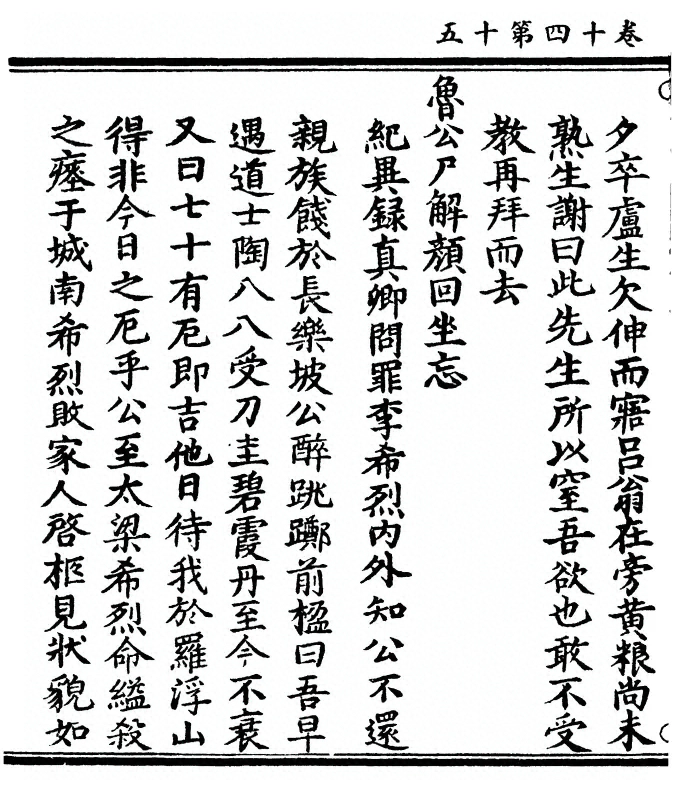 卷十四第十五
夕卒盧生欠伸而寤呂翁在旁黄粮尚未
熟生謝曰此先生所以窒吾欲也敢不受
教再拜而去
魯公尸解顔回坐忘
紀異録真卿問罪李希烈内外知公不還
親族餞於長樂坡公醉跳躑前楹曰吾早
遇道士陶八八受刀圭碧霞丹至今不衰
又曰七十有厄即吉他日待我於羅浮山
得非今日之厄乎公至太梁希烈命縊殺
之瘞于城南希烈敗家人啓柩見狀貌如